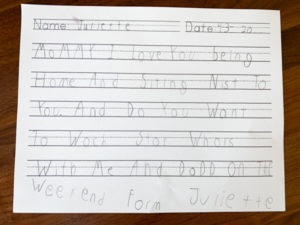 Name: Juliette Date: 4-3- 20
MoMMY I Love You being
Home And Siting Nist To
You And Do You Wont
To Woch Star Whors
With Me And DaDD On The
Weekend form Juliette